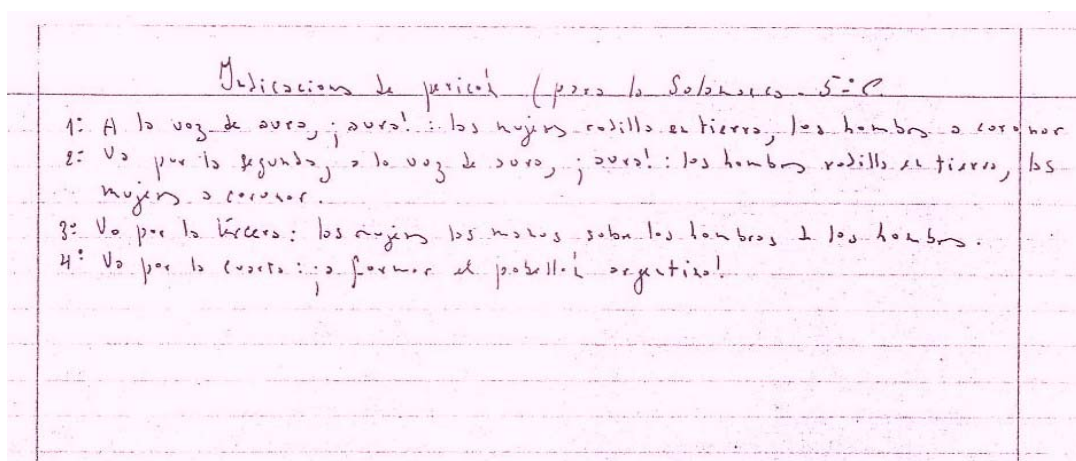 Indicaciones de pericón (para la Salamanca. 5º C
1º A la voz de aura, ¡aura!: las mujeres rodilla en tierra, los hombres a coronar
2º Va por la segunda, a la voz de aura, ¡aura!: los hombres rodilla en tierra, las
mujeres a coronar.
3º Va por la tercera: las mujeres las manos sobre los hombros de los hombres.
4º Va por la cuarta: ¡a formar el pabellón argentino!